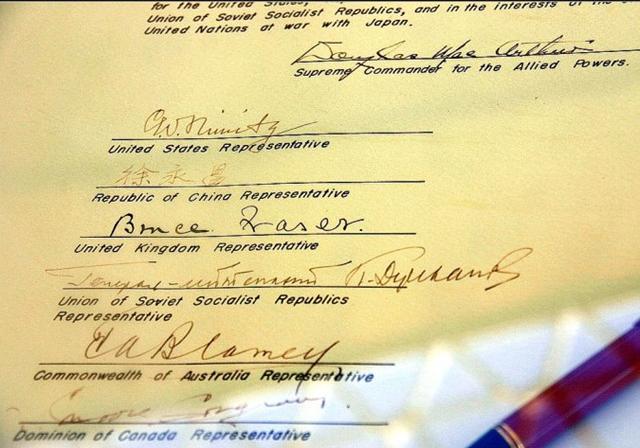 for the United States,
Union of Soviet Socialist Republics, and in the interests of the
United Nations at war with Japan.
Douglas MacArthur
Supreme Commander for the Allied Powers.
C.W. Nimitz
United States Representative
徐永昌
Republic of China Representative
Bruce Fraser.
United Kingdom Representative
Генерал-лейтенант К. Деревянко
Union of Soviet Socialist Republics
Representative
T A Blamey
Commonwealth of Australia Representative
Dominion of Canada Representative